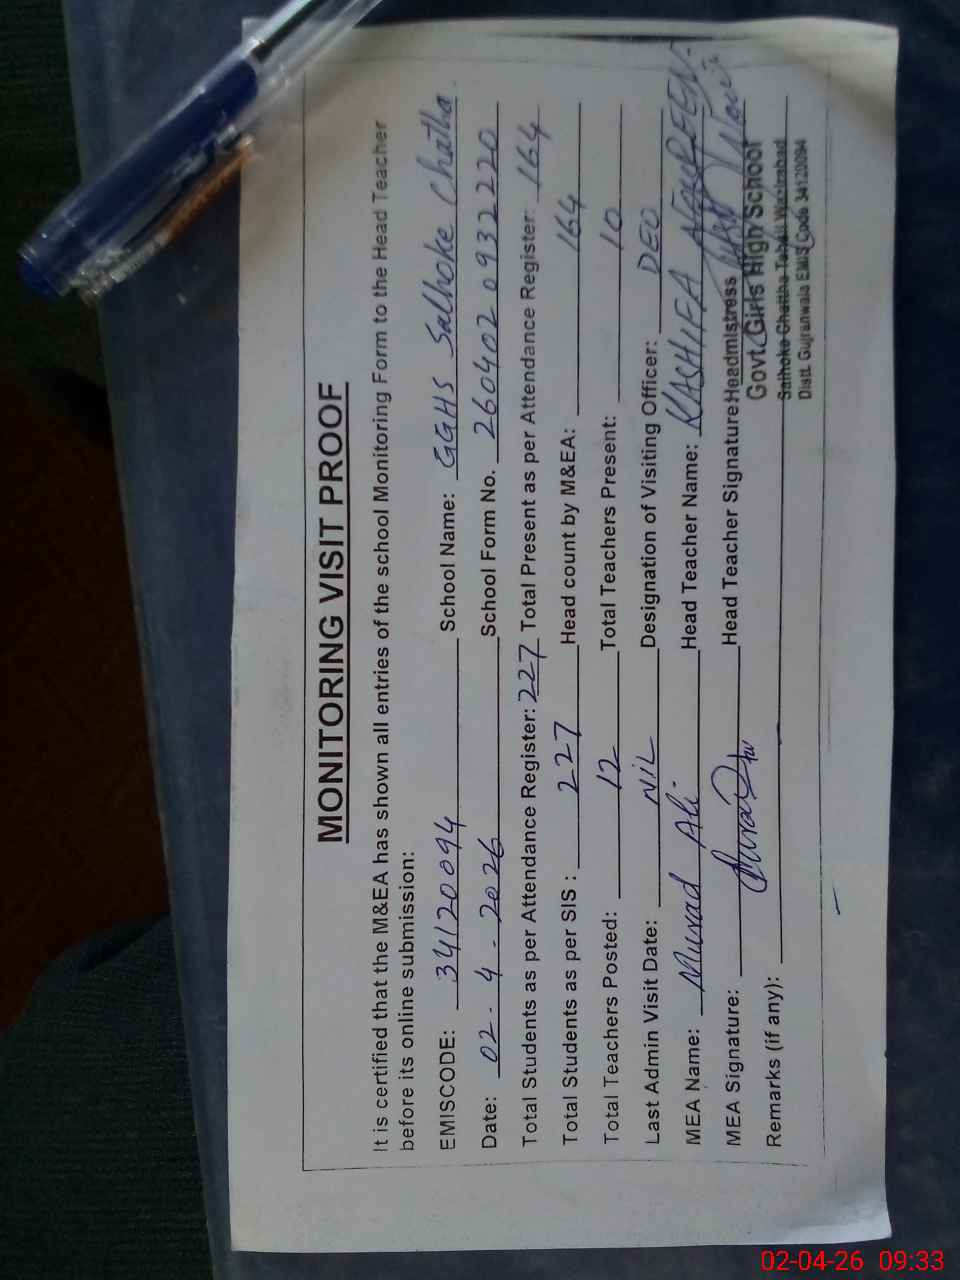 MONITORING VISIT PROOF
It is certified that the M&EA has shown all entries of the school Monitoring Form to the Head Teacher
before its online submission:
EMISCODE: 34120094 School Name: GGHS Salhoke Chatha
Date: 02-4-2026 School Form No. 260402 0932220
Total Students as per Attendance Register: 227 Total Present as per Attendance Register: 164
Total Students as per SIS : 227 Head count by M&EA: 164
Total Teachers Posted: 12 Total Teachers Present: 10
Last Admin Visit Date: NIL Designation of Visiting Officer: DEO
MEA Name: Murad Ali Head Teacher Name: KASHIFA NOUREEN
MEA Signature: Head Teacher Signature: Headmistress
Govt. Girls High School
Remarks (if any): Salhoke Chattha Tehsil Wazirabad
Distt. Gujranwala EMIS Code 34120094
02-04-26 09:33